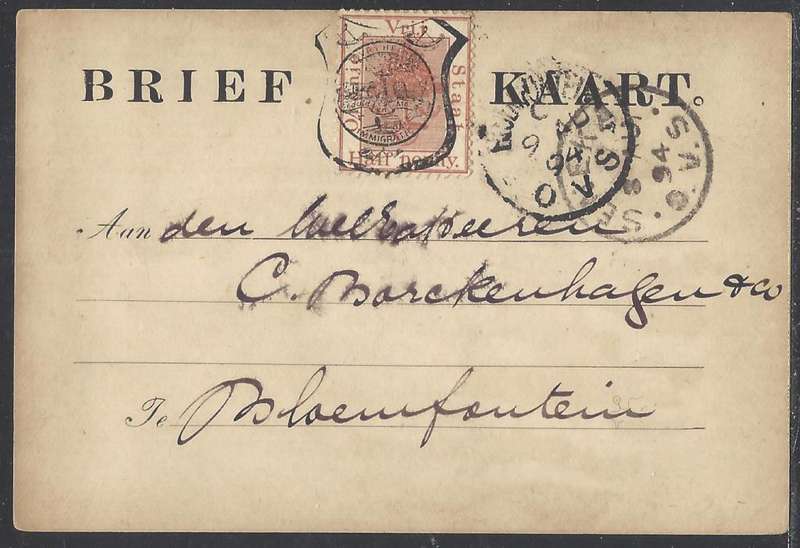 BRIEF KAART.
Vrij
Staat
Half penny.
IMMIGRATIE
O V S
94
SENEKAL
O.V.S.
94
Aan den
C. Borckenhagen & co
Te Bloemfontein